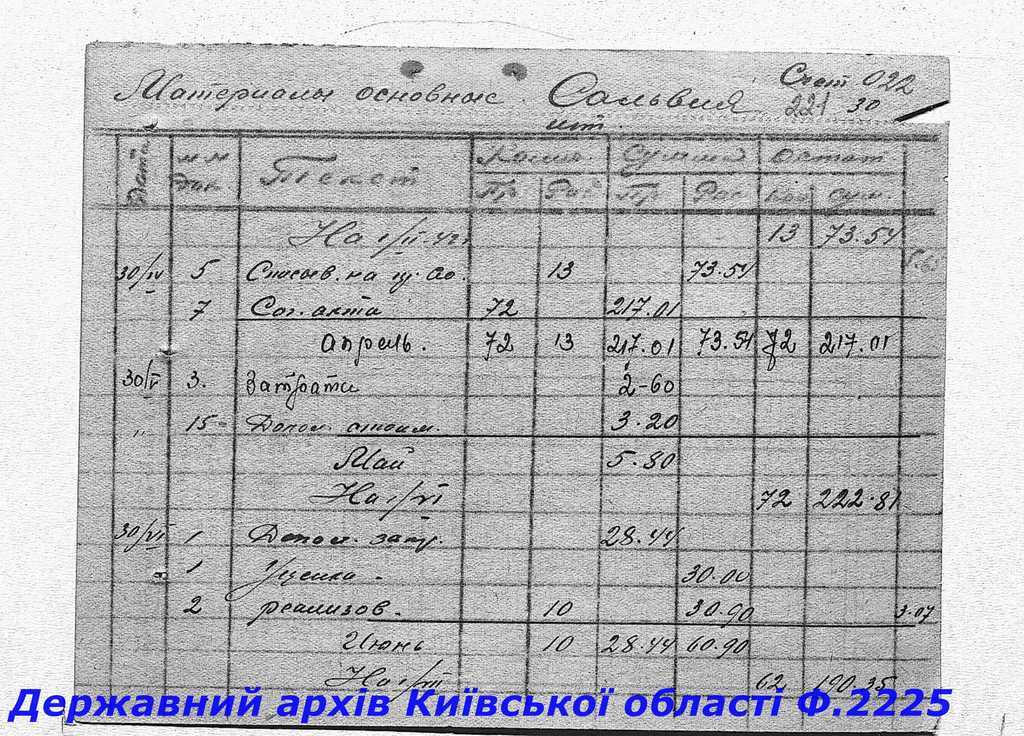 Материалы основные Сальвия Счет 022
шт. 221 30
Дата №№ док. Текст Колич. Сумма Остат
Пр Рас Пр Рас Кол сум.
На 1/IV 42 13 73.54
30/IV 5 Списыв. на 13 73.54
7 Сог. акта 72 217.01
Апрель. 72 13 217.01 73.54 72 217.01
30/V 3. Затраты 2-60
" 15 Допол. стоим. 3.20
Май 5.80
На 1/VI 72 222.81
30/VI 1 Допол. затр. 28.44
1 Уценка. 30.00
2 реализов. 10 30.90 3.07
Июнь 10 28.44 60.90
На 1/VII 62 190.35
Державний архів Київської області Ф.2225